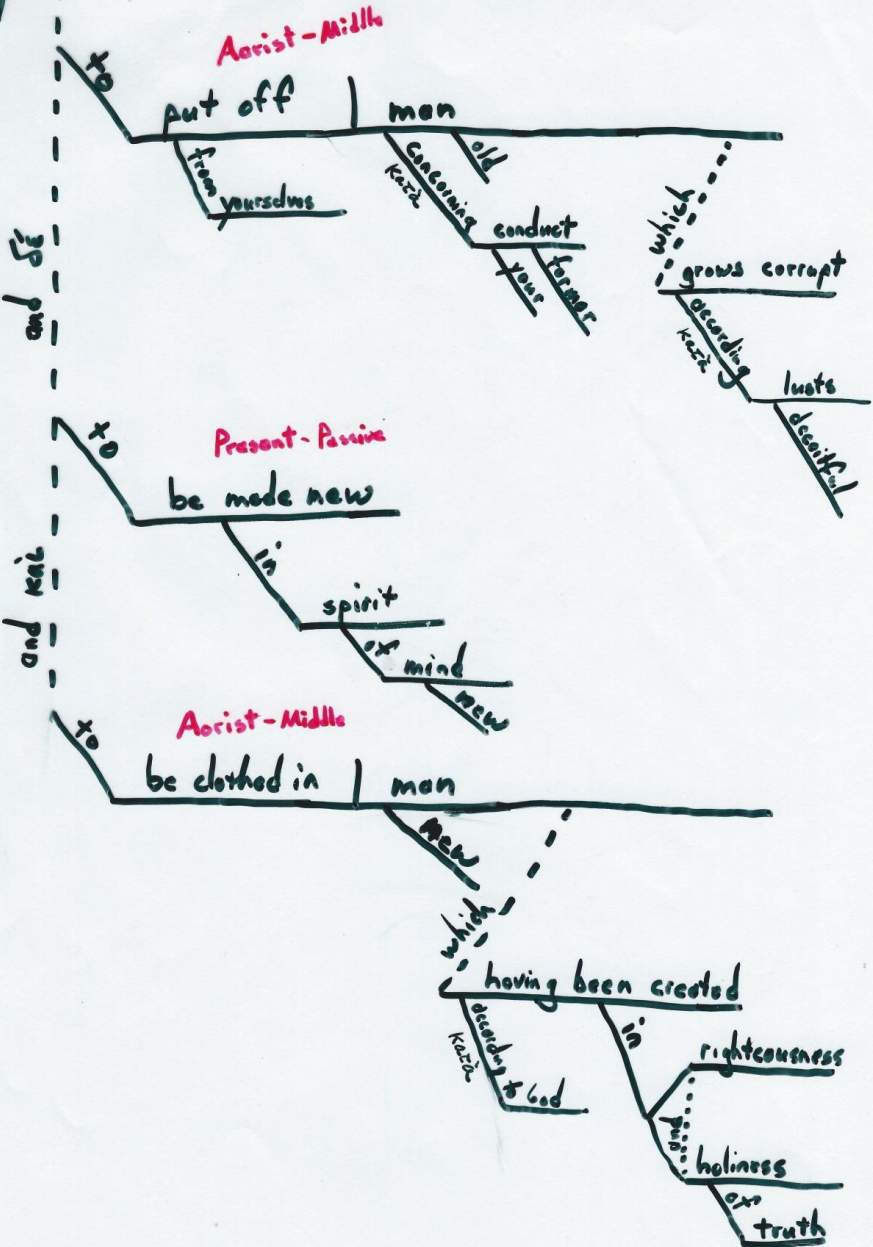 Aorist-Middle
to
put off
man
from
yourselves
concerning
κατὰ
old
conduct
your
former
which
grows corrupt
according
κατὰ
lusts
deceitful
and δὲ
Present-Passive
to
be made new
in
spirit
of
mind
new
and καὶ
Aorist-Middle
to
be clothed in
man
new
which
having been created
according
κατὰ
to God
in
righteousness
and
holiness
of
truth